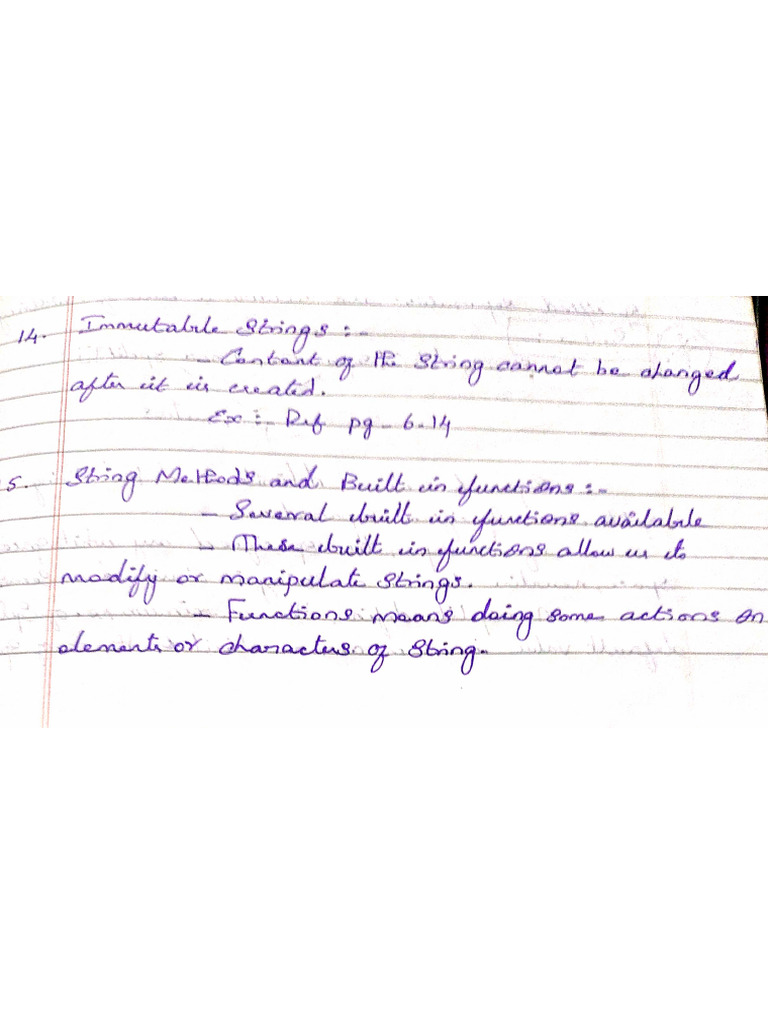 14. Immutable Strings :-
- Content of the string cannot be changed
after it is created.
Ex :- Ref pg - 6.14
5. String Methods and Built in functions :-
- Several built in functions available
- These built in functions allow us to
modify or manipulate strings.
- Functions means doing some actions on
elements or characters of string.